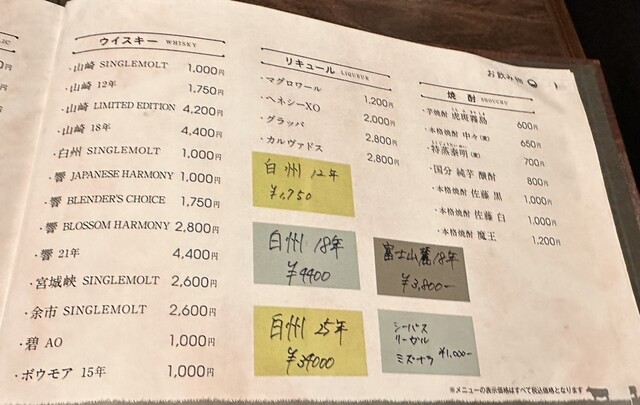 ウイスキー WHISKY
・山崎 SINGLEMOLT 1,000円
・山崎 12年 1,750円
・山崎 LIMITED EDITION 4,200円
・山崎 18年 4,400円
・白州 SINGLEMOLT 1,000円
・響 JAPANESE HARMONY 1,000円
・響 BLENDER'S CHOICE 1,750円
・響 BLOSSOM HARMONY 2,800円
・響 21年 4,400円
・宮城峡 SINGLEMOLT 2,600円
・余市 SINGLEMOLT 2,600円
・碧 AO 1,000円
・ボウモア 15年 1,000円
リキュール LIQUEUR
・マグロワール 1,200円
・ヘネシーXO 2,000円
・グラッパ 2,800円
・カルヴァドス 2,800円
白州 12年
¥1,750
白州 18年
¥4400
白州 25年
¥34000
お飲み物
焼酎 SHOUCHU
・芋焼酎 虎斑霧島 600円
・本格焼酎 中々(麦) 650円
・特蒸泰明(麦) 700円
・国分 純芋 醸酎 800円
・本格焼酎 佐藤 黒 1,000円
・本格焼酎 佐藤 白 1,000円
・本格焼酎 魔王 1,200円
富士山麓 18年
¥3,800-
シーバス
リーガル
ミズナラ ¥1,000-
※メニューの表示価格はすべて税込価格となります